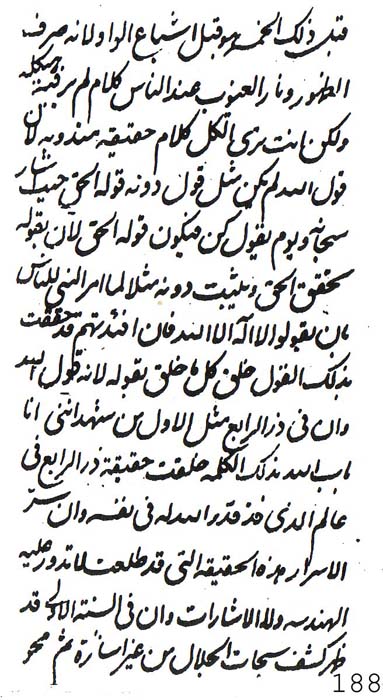 قبل ذلك الخمسه و قبل اشباع الواو لانه صرف
الظهور و نار العيوب عند الناس كلام لم يرقبه
ولكن انت ترى الكل كلام حقيقة مندوبة لان
قول الله لم يكن مثل قول دونه قوله الحق حيث اشار
سبحانه و يوم يقول كن فيكون قوله الحق لان بقوله
يحقق الحق و يثبت دونه مثلا لما امر النبى للناس
بان يقولوا لا اله الا الله فان افئدتهم قد حققت
بذلك القول خلق كل ما خلق بقوله لانه قول الله
وان فى ذر الرابع مثل الاول من سئهد اننى انا
باب الله بذلك الكلمه خلقت حقيقة ذر الرابع فى
عالم الذى قد قدر الله له فى نفسه وان سر
الاسرار هذه الحقيقة التى قد طلعت لما تدور عليه
الهندسه ولا الاشارات وان فى السنة الاولى قد
ظهر كشف سبحات الجلال من غير اشارة ثم محو
188